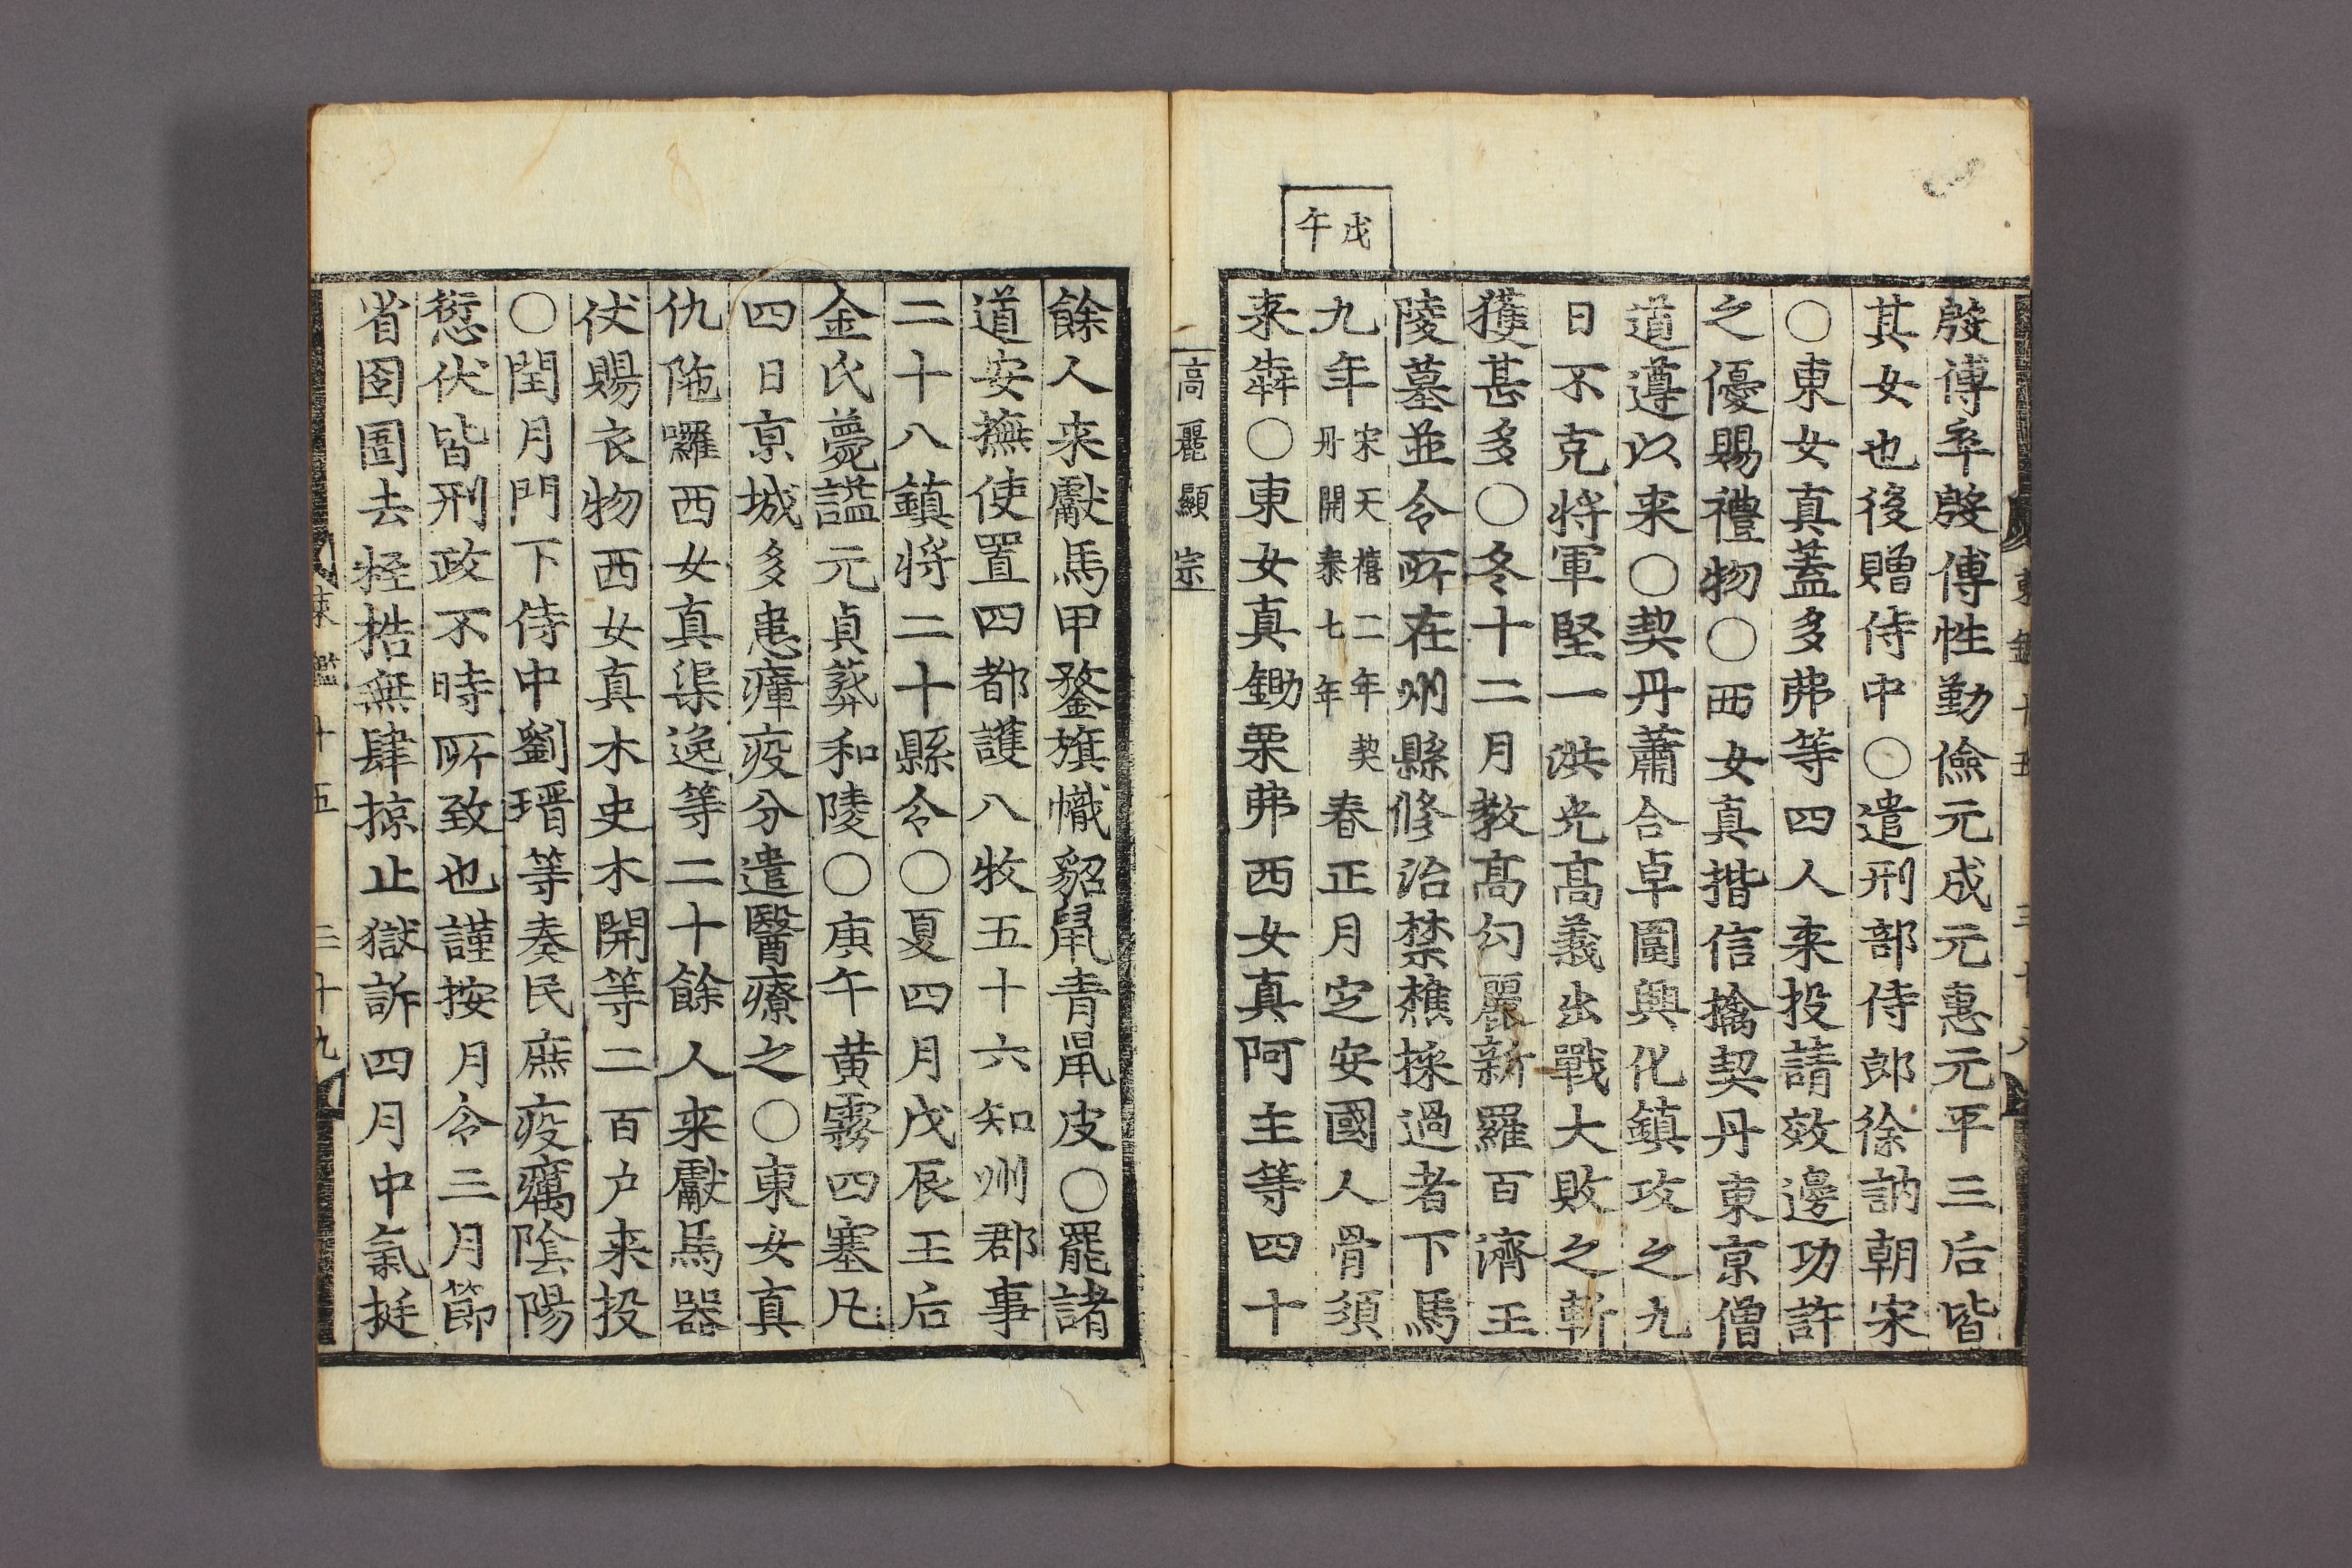 殷傅卒殷傅性勤儉元成元惠元平三后皆
其女也後贈侍中○遣刑部侍郎徐訥朝宋
○東女真蓋多弗等四人来投請效邊功許
之優賜禮物○西女真揩信擒契丹東京僧
道遵以来○契丹蕭合卓圍興化鎮攻之九
日不克将軍堅一洪光高義出戰大敗之斬
獲甚多○冬十二月教高勾麗新羅百濟王
陵墓並令所在州縣修治禁樵採過者下馬
戊午
九年宋天禧二年契丹開泰七年春正月定安國人骨須
来奔○東女真鋤栗弗西女真阿主等四十
高麗顯宗
餘人来獻馬甲鍪旗幟貂鼠青鼠皮○罷諸
道安撫使置四都護八牧五十六知州郡事
二十八鎮将二十縣令○夏四月戊辰王后
金氏薨諡元貞葬和陵○庚午黄霧四塞凡
四日京城多患瘴疫分遣醫療之○東女真
仇陁囉西女真渠逸等二十餘人来獻馬器
仗賜衣物西女真木史木開等二百户来投
○閏月門下侍中劉瑨等奏民庶疫癘陰陽
愆伏皆刑政不時所致也謹按月令三月節
省囹圄去桎梏無肆掠止獄訴四月中氣挺
東鑑十五 三十九